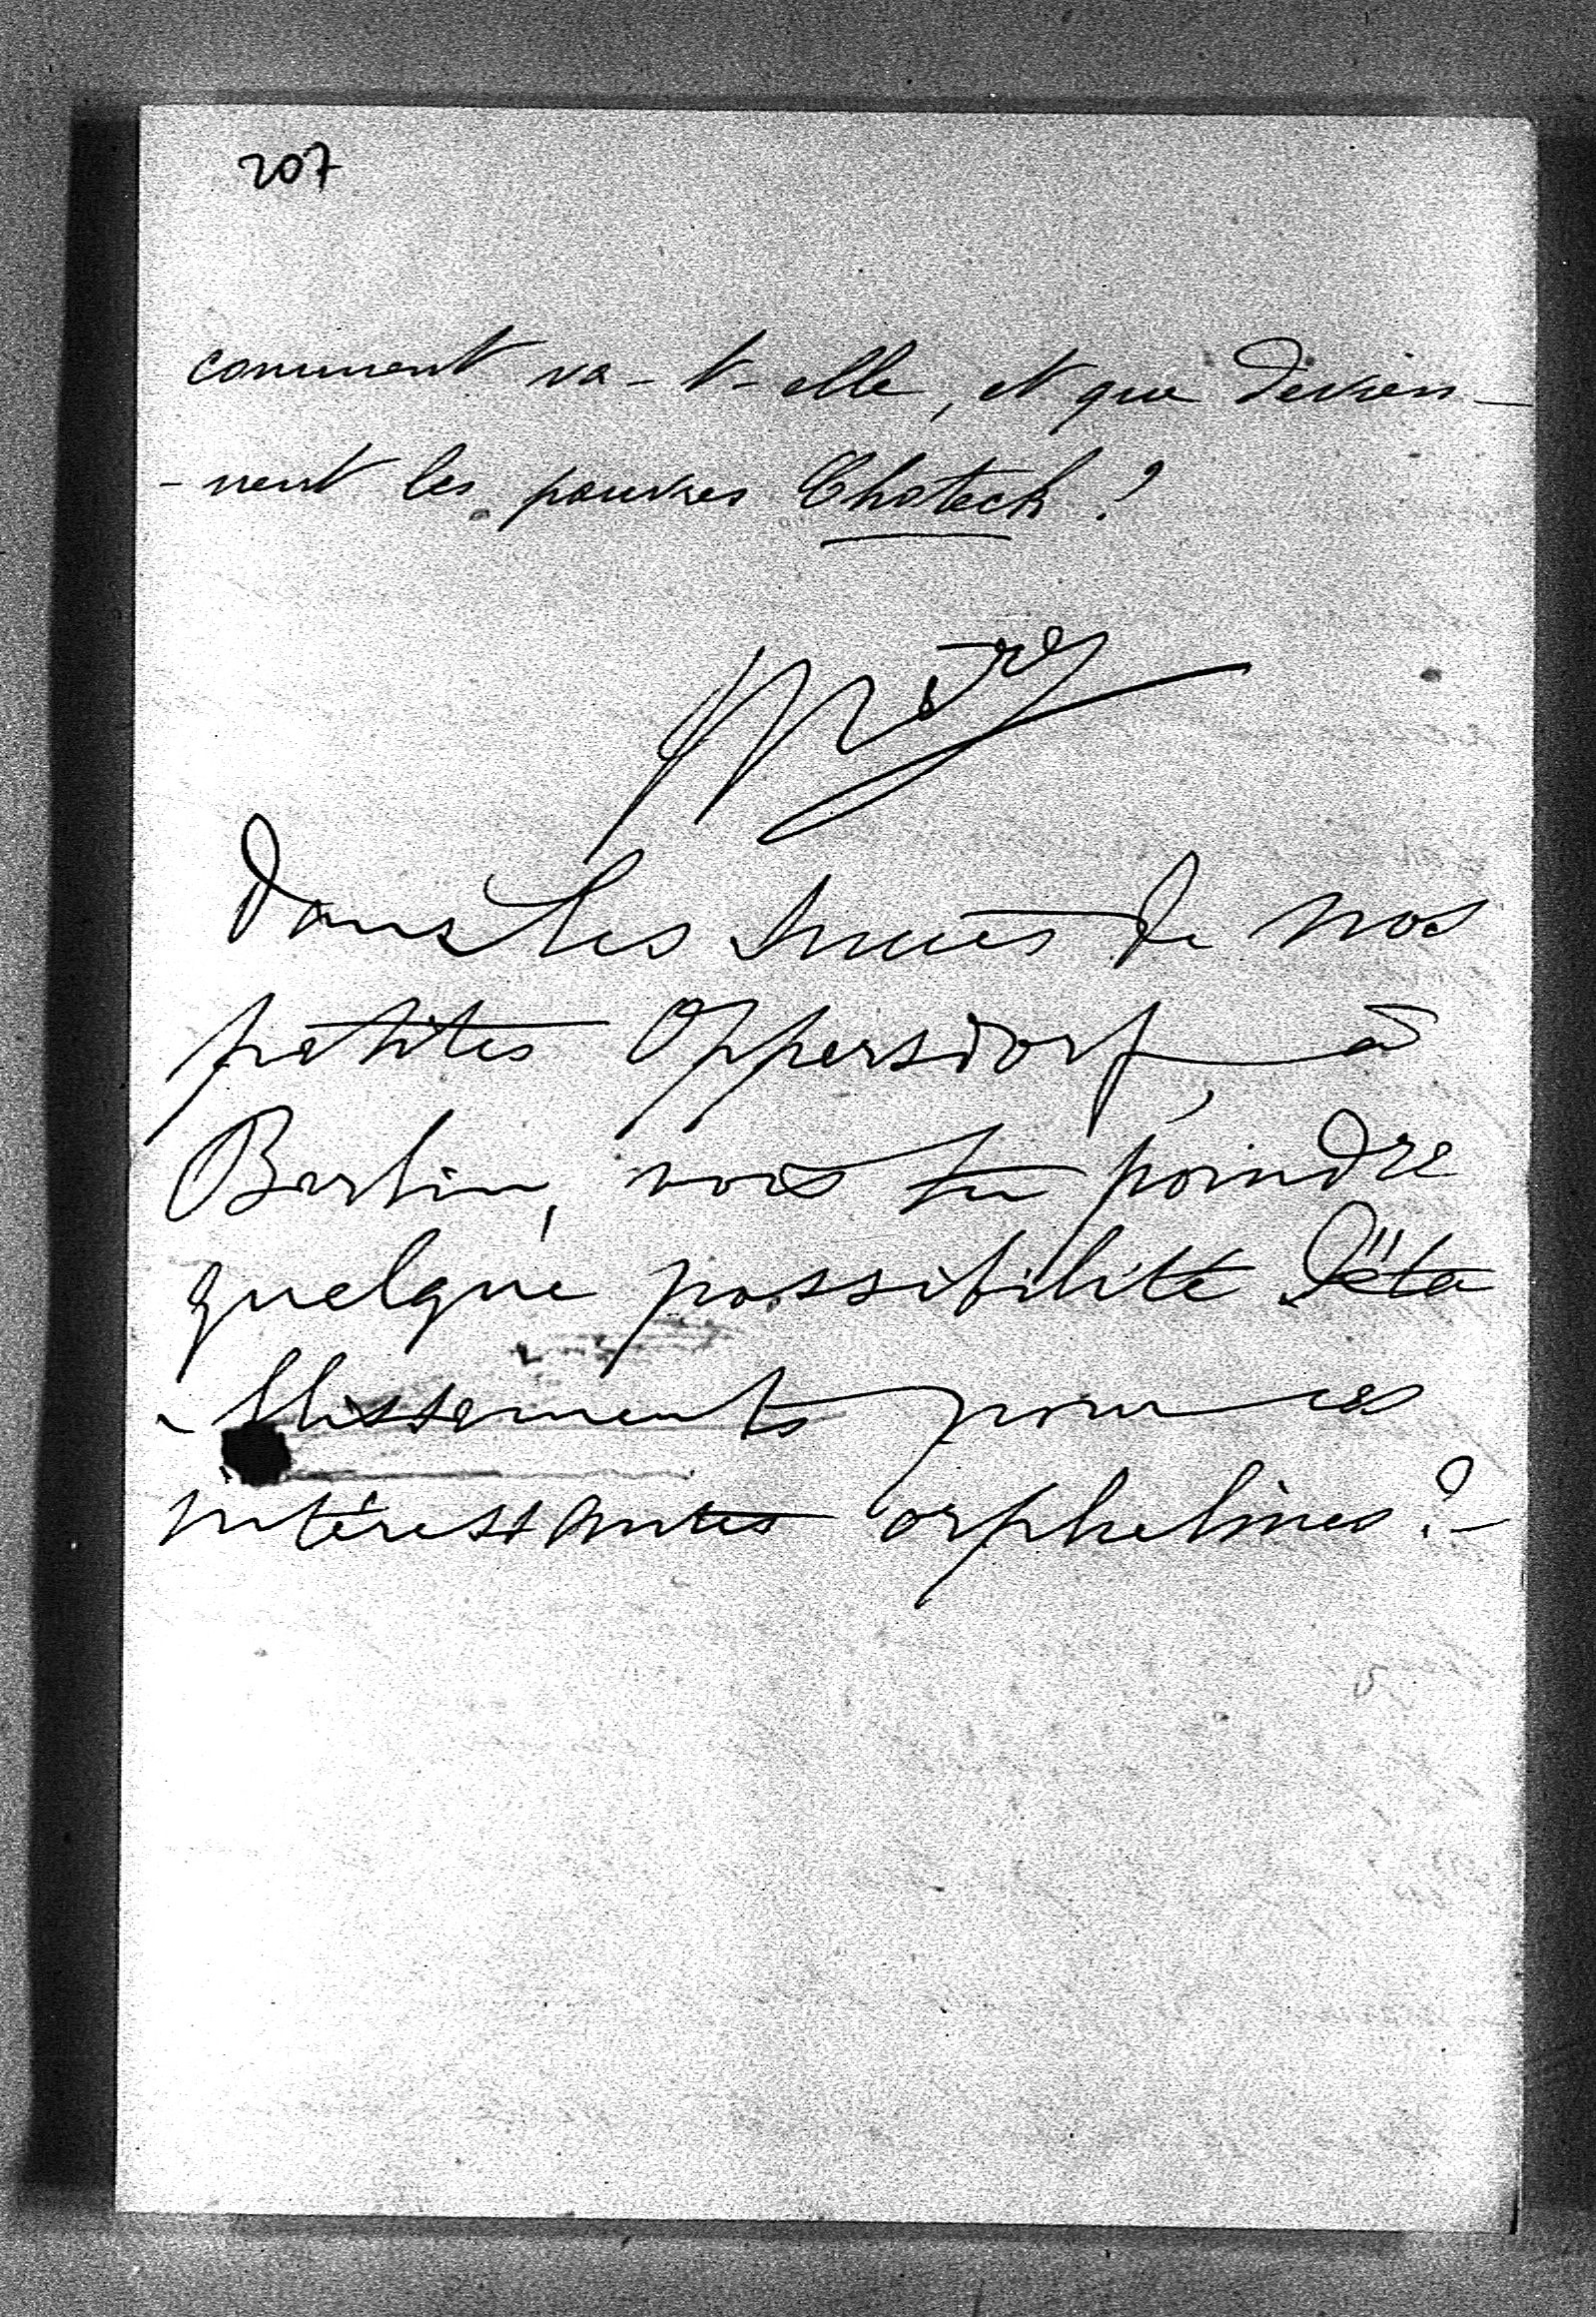 207
comment va-t-elle, et que devien-
-nent les pauvres Choteck ?
Dans les succès de nos
petites Oppersdorf, à
Berlin, vois tu poindre
quelque possibilité d'éta
-blissements pour ces
intéressantes orphelines ? -